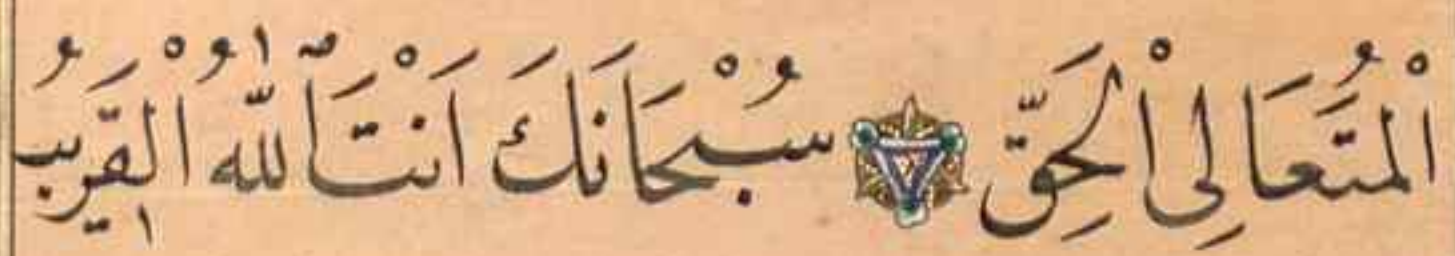 اَلْمُتَعَالِى الْحَقّ سُبْحَانَكَ اَنْتَ اللّٰهُ الْقَرِيبُ